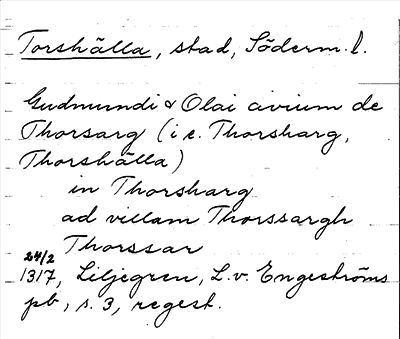 Torshälla, stad, Söderm. l.
Gudmundi & Olai civium de
Thorsarg (i e. Thorsharg,
Thorshälla)
in Thorsharg
ad villam Thorssargh
Thorssar
24/2
1317, Liljegren, L. v. Engeströms
pb, s. 3, regest.